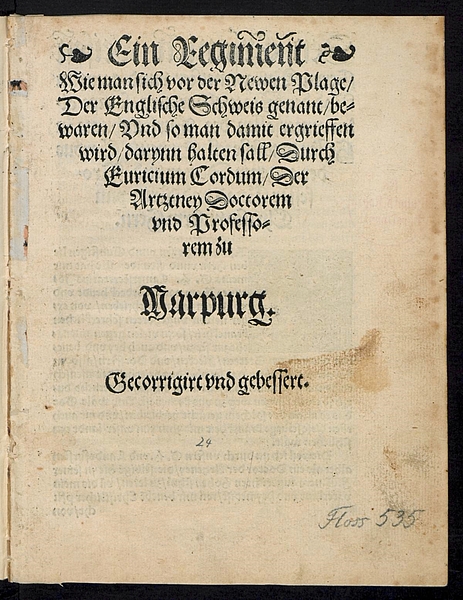 Ein Regimēnt
Wie man sich vor der Newen Plage/
Der Englische Schweis genant/ be-
waren/ Vnd so man damit ergrieffen
wird/ darynn halten sall/ Durch
Euricium Cordum/ Der
Artzeney Doctorem
vnd Professo-
rem zu
Marpurg.
Gecorrigirt vnd gebessert.
24
Floss 535